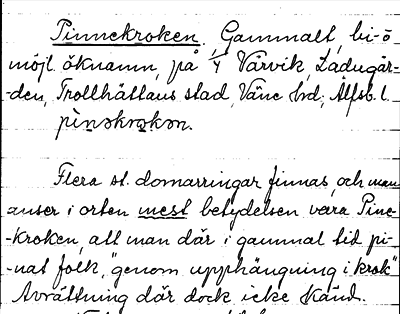 Pinnekroken. Gammalt, bi-ö
möjl. öknamn, på 1/4 Värvik, Ladugår-
-den, Trollhättans stad, Väne hd; Älfsb. l.
pinəkrokən.
Flera st. domarringar finnas, och man
anser i orten mest betydelsen vara Pine-
-kroken, att man där i gammal tid pi-
-nat folk, "genom upphängning i krok"
Avrättning där dock icke känd.